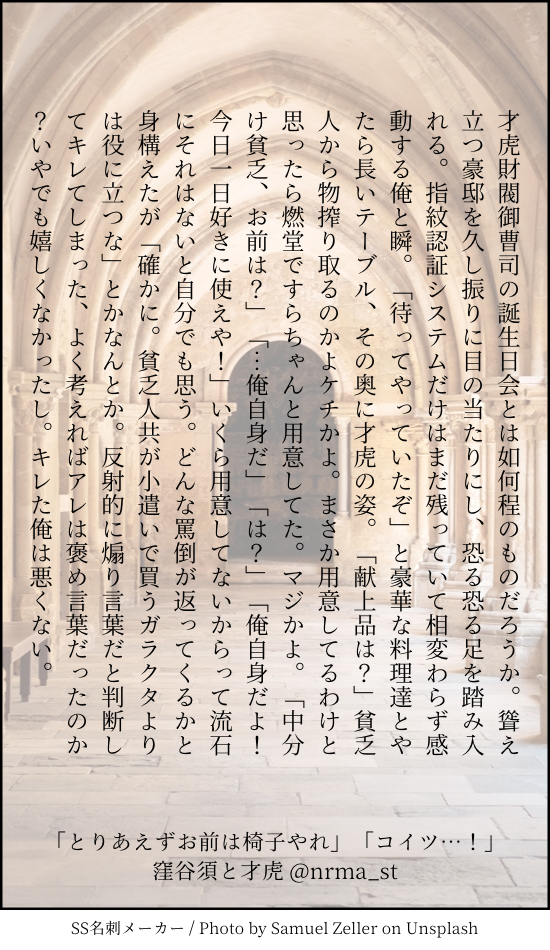 才虎財閥御曹司の誕生日会とは如何程のものだろうか。聳え
立つ豪邸を久し振りに目の当たりにし、恐る恐る足を踏み入
れる。指紋認証システムだけはまだ残っていて相変わらず感
動する俺と瞬。「待ってやっていたぞ」と豪華な料理達とや
たら長いテーブル、その奥に才虎の姿。「献上品は？」貧乏
人から物搾り取るのかよケチかよ。まさか用意してるわけと
思ったら燃堂ですらちゃんと用意してた。マジかよ。「中分
け貧乏、お前は？」「…俺自身だ」「は？」「俺自身だよ！
今日一日好きに使えや！」いくら用意してないからって流石
にそれはないと自分でも思う。どんな罵倒が返ってくるかと
身構えたが「確かに。貧乏人共が小遣いで買うガラクタより
は役に立つな」とかなんとか。反射的に煽り言葉だと判断し
てキレてしまった、よく考えればアレは褒め言葉だったのか
？いやでも嬉しくなかったし。キレた俺は悪くない。
「とりあえずお前は椅子やれ」「コイツ…！」
窪谷須と才虎 @nrma_st
SS名刺メーカー / Photo by Samuel Zeller on Unsplash